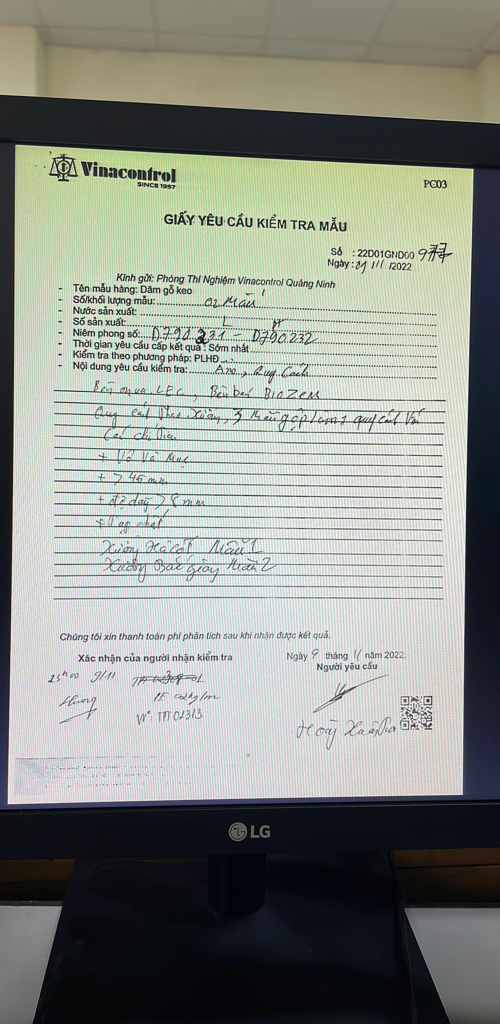 Vinacontrol
SINCE 1957
PC03
GIẤY YÊU CẦU KIỂM TRA MẪU
Số : 22D01GND00 977
Ngày : 11/2022
Kính gửi: Phòng Thí Nghiệm Vinacontrol Quảng Ninh
- Tên mẫu hàng: Dăm gỗ keo
- Số/khối lượng mẫu: 02 Mẫu
- Nước sản xuất:
- Số sản xuất:
- Niêm phong số: D790231 - D790232
- Thời gian yêu cầu cấp kết quả : Sớm nhất
- Kiểm tra theo phương pháp: PLHĐ
- Nội dung yêu cầu kiểm tra: Ẩm, Quy Cách
Bên mua LEC, Bên bán BIOZEM
Quy cách theo xưởng, 3 Mẫu gộp làm 1 quy cách Và
Các chỉ tiêu
+ Vỏ Và Mục
+ > 45 mm
+ độ dày > 8 mm
+ Tạp chất
Xưởng Mẫu 1
Xưởng Bắc Giang Mẫu 2
Chúng tôi xin thanh toán phí phân tích sau khi nhận được kết quả.
Xác nhận của người nhận kiểm tra
Ngày 9 tháng 11 năm 2022
Người yêu cầu
9/11
02kg/m
N°: TM 01313
LG